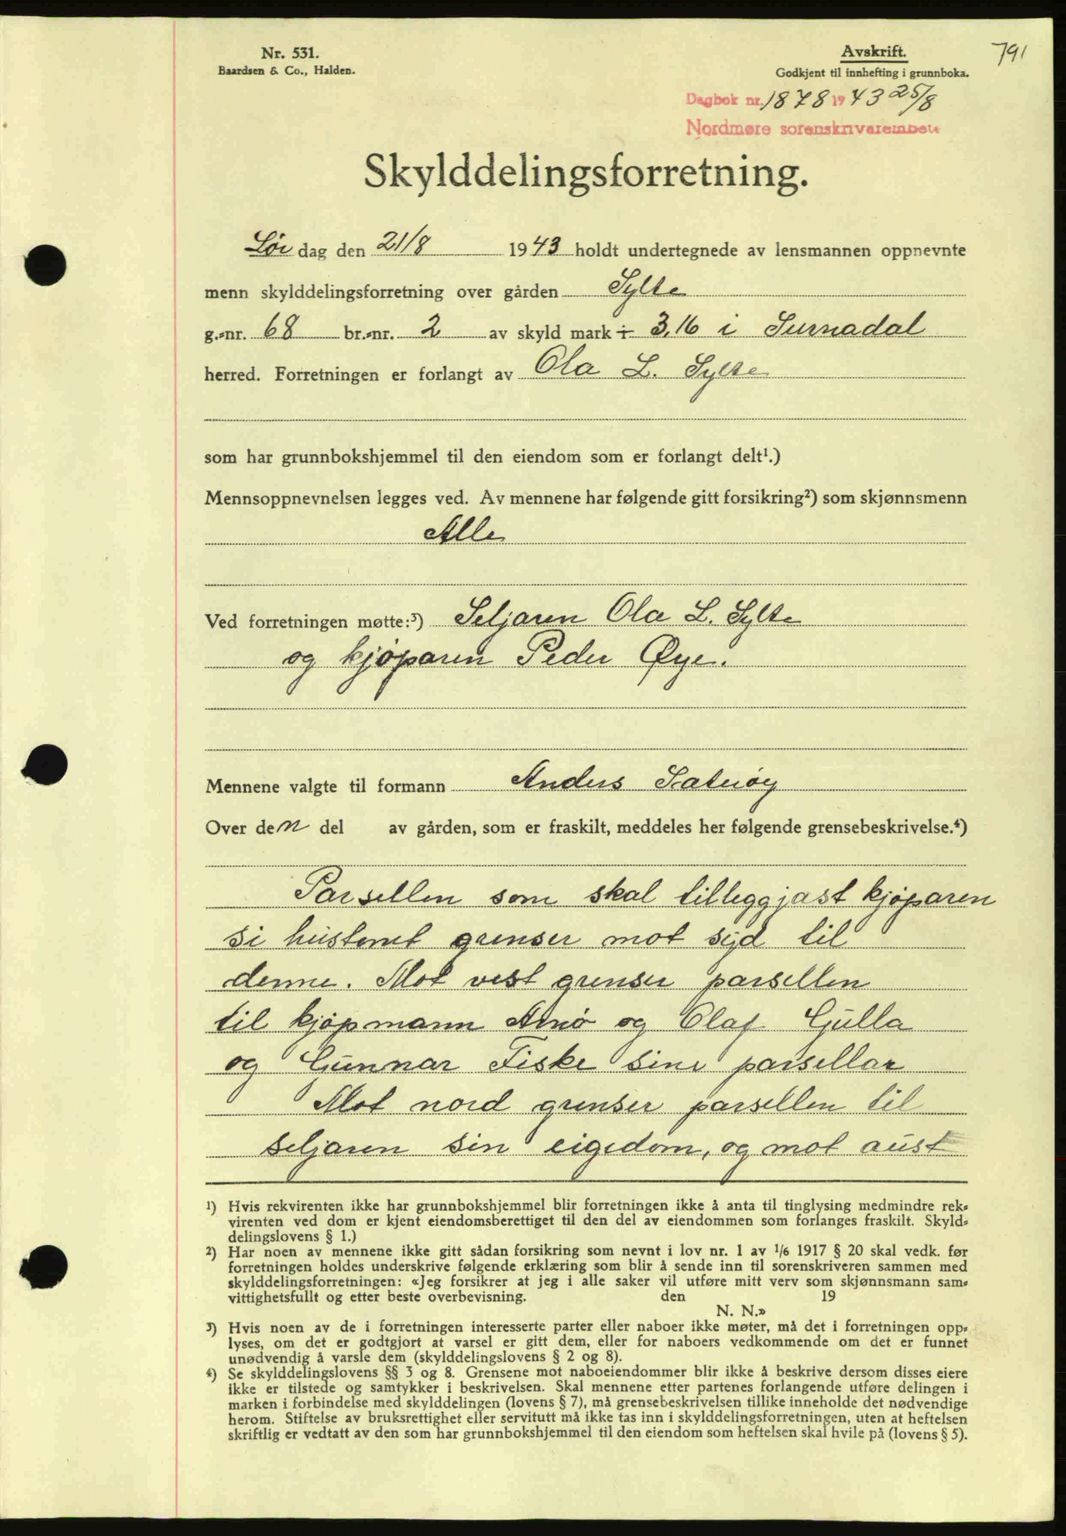 Nr. 531.
Baardsen & Co., Halden.
Avskrift.
Godkjent til innhefting i grunnboka.
791
Dagbok nr. 1878 1943 25/8
Nordmøre sorenskriverembete
Skylddelingsforretning.
Lør dag den 21/8 1943 holdt undertegnede av lensmannen oppnevnte
menn skylddelingsforretning over gården Sylte
g.=nr. 68 br.=nr. 2 av skyld mark ÷ 3,16 i Surnadal
herred. Forretningen er forlangt av Ola L. Sylte
som har grunnbokshjemmel til den eiendom som er forlangt delt¹.)
Mennsoppnevnelsen legges ved. Av mennene har følgende gitt forsikring²) som skjønnsmenn
Alle
Ved forretningen møtte:³) Seljaren Ola L. Sylte
og kjøparen Peder Øye.
Mennene valgte til formann Anders Sæterøy
Over den del av gården, som er fraskilt, meddeles her følgende grensebeskrivelse.⁴)
Parsellen som skal tilleggjast kjøparen
si hustomt grenser mot syd til
denne. Mot vest grenser parsellen
til kjøpmann Amø og Olaf Gulla
og Gunnar Fiske sine parsellar
Mot nord grenser parsellen til
seljaren sin eigedom, og mot aust
¹) Hvis rekvirenten ikke har grunnbokshjemmel blir forretningen ikke å anta til tinglysing medmindre rek=
virenten ved dom er kjent eiendomsberettiget til den del av eiendommen som forlanges fraskilt. Skyld=
delingslovens § 1.)
²) Har noen av mennene ikke gitt sådan forsikring som nevnt i lov nr. 1 av 1/6 1917 § 20 skal vedk. før
forretningen holdes underskrive følgende erklæring som blir å sende inn til sorenskriveren sammen med
skylddelingsforretningen: «Jeg forsikrer at jeg i alle saker vil utføre mitt verv som skjønnsmann sam=
vittighetsfullt og etter beste overbevisning. den 19
N. N.»
³) Hvis noen av de i forretningen interesserte parter eller naboer ikke møter, må det i forretningen opp=
lyses, om det er godtgjort at varsel er gitt dem, eller for naboers vedkommende om det er funnet
unødvendig å varsle dem (skylddelingslovens § 2 og 8).
⁴) Se skylddelingslovens §§ 3 og 8. Grensene mot naboeiendommer blir ikke å beskrive dersom disses eiere
ikke er tilstede og samtykker i beskrivelsen. Skal mennene etter partenes forlangende utføre delingen i
marken i forbindelse med skylddelingen (lovens § 7), må grensebeskrivelsen tillike inneholde det nødvendige
herom. Stiftelse av bruksrettighet eller servitutt må ikke tas inn i skylddelingsforretningen, uten at heftelsen
skriftlig er vedtatt av den som har grunnbokshjemmel til den eiendom som heftelsen skal hvile på (lovens § 5).